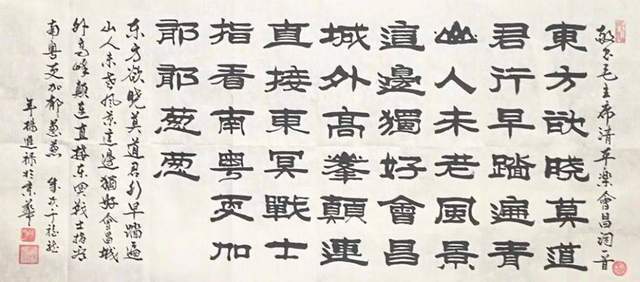 敬书毛主席清平樂會昌詞一首
東方欲曉莫道
君行早踏遍青
山人未老風景
這邊獨好會昌
城外高峯顛連
直接東冥戰士
指看南粤更加
郁郁葱葱
东方欲晓莫道君行早踏遍
山人未老风景这边独好会昌城
外高峰颠连直接东冥战士指看
南粤更加郁葱葱
年杨进禄於京華